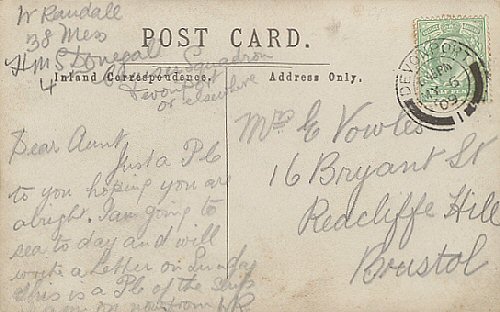 W Randall
38 Mess
H.M.S Donegal
4th Cruiser Squadron
Devonport
or elsewhere
POST CARD.
Inland Correspondence.
Address Only.
DEVONPORT
09
1
Dear Aunt
Just a P.C
to you hoping you are
alright. I am going to
sea to day and will
write a letter on Sunday
this is a P.C of the ship
I am on now from WR
Mrs E Vowles
16 Bryant St
Redcliffe Hill
Bristol